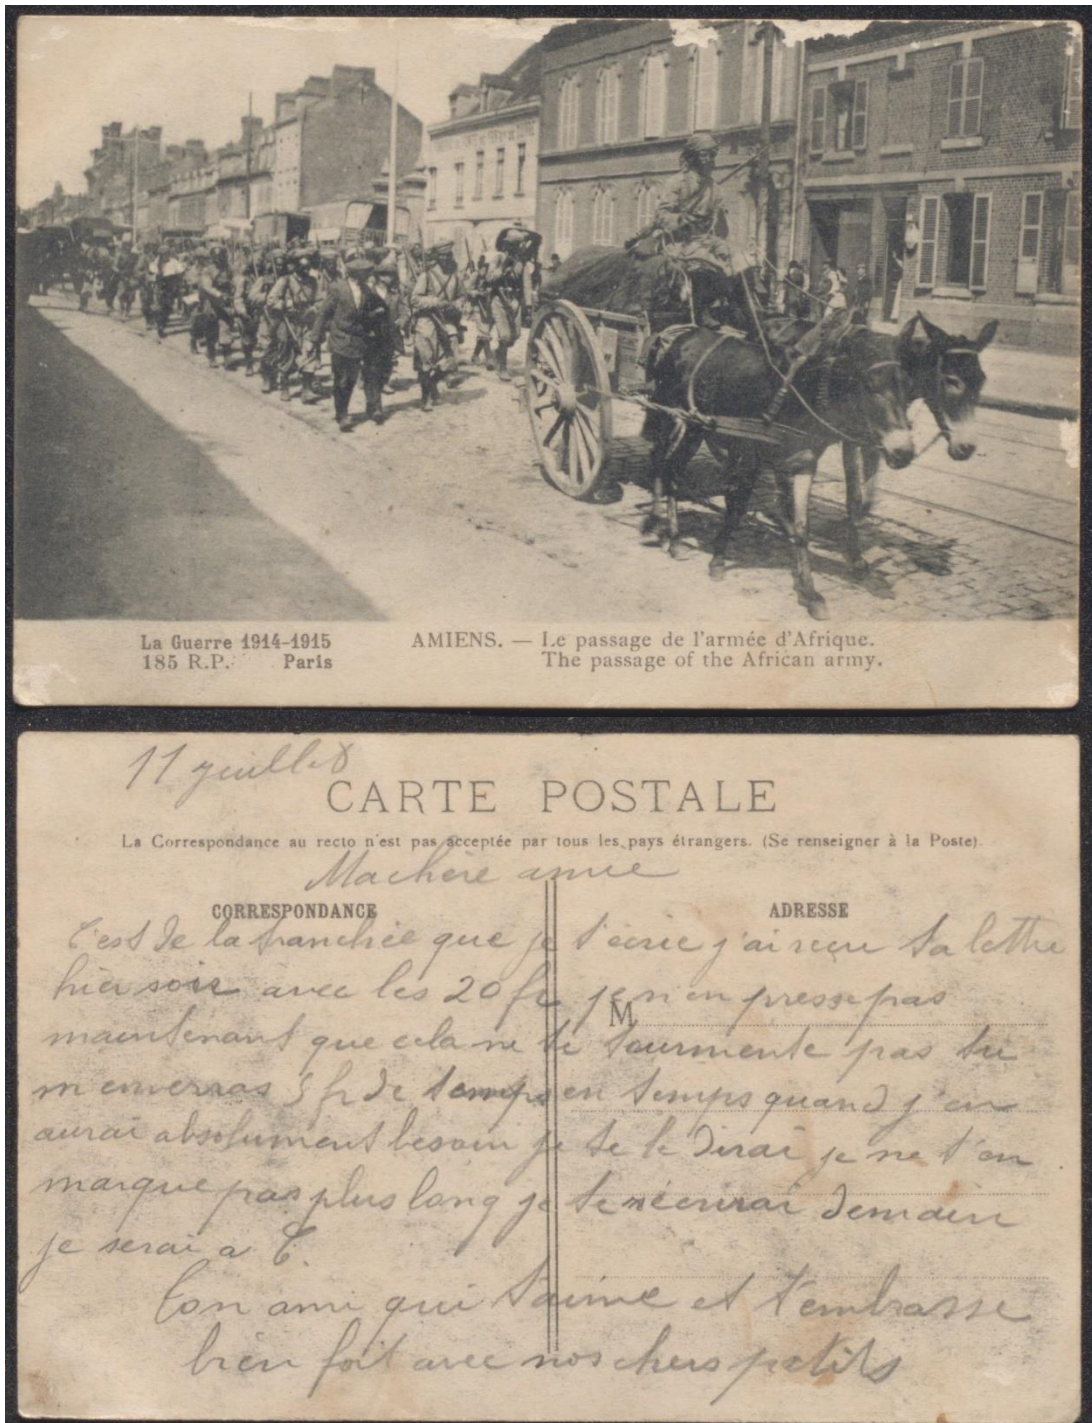 La Guerre 1914-1915
185 R.P. Paris
AMIENS. — Le passage de l'armée d'Afrique.
The passage of the African army.
11 juillet
CARTE POSTALE
La Correspondance au recto n'est pas acceptée par tous les pays étrangers. (Se renseigner à la Poste).
Machère amie
CORRESPONDANCE
ADRESSE
C'est de la tranchée que je t'écrie j'ai reçu ta lettre
hier soir avec les 20 fr je n'en presse pas
M
maintenant que cela ne te tourmente pas tu
m'enverras 5 fr de temps en temps quand j'en
aurai absolument besoin je te le dirai je ne t'en
marque pas plus long je te récrirai demain
je serai a C.
Ton ami qui t'aime et t'embrasse
bien fort avec nos chers petits